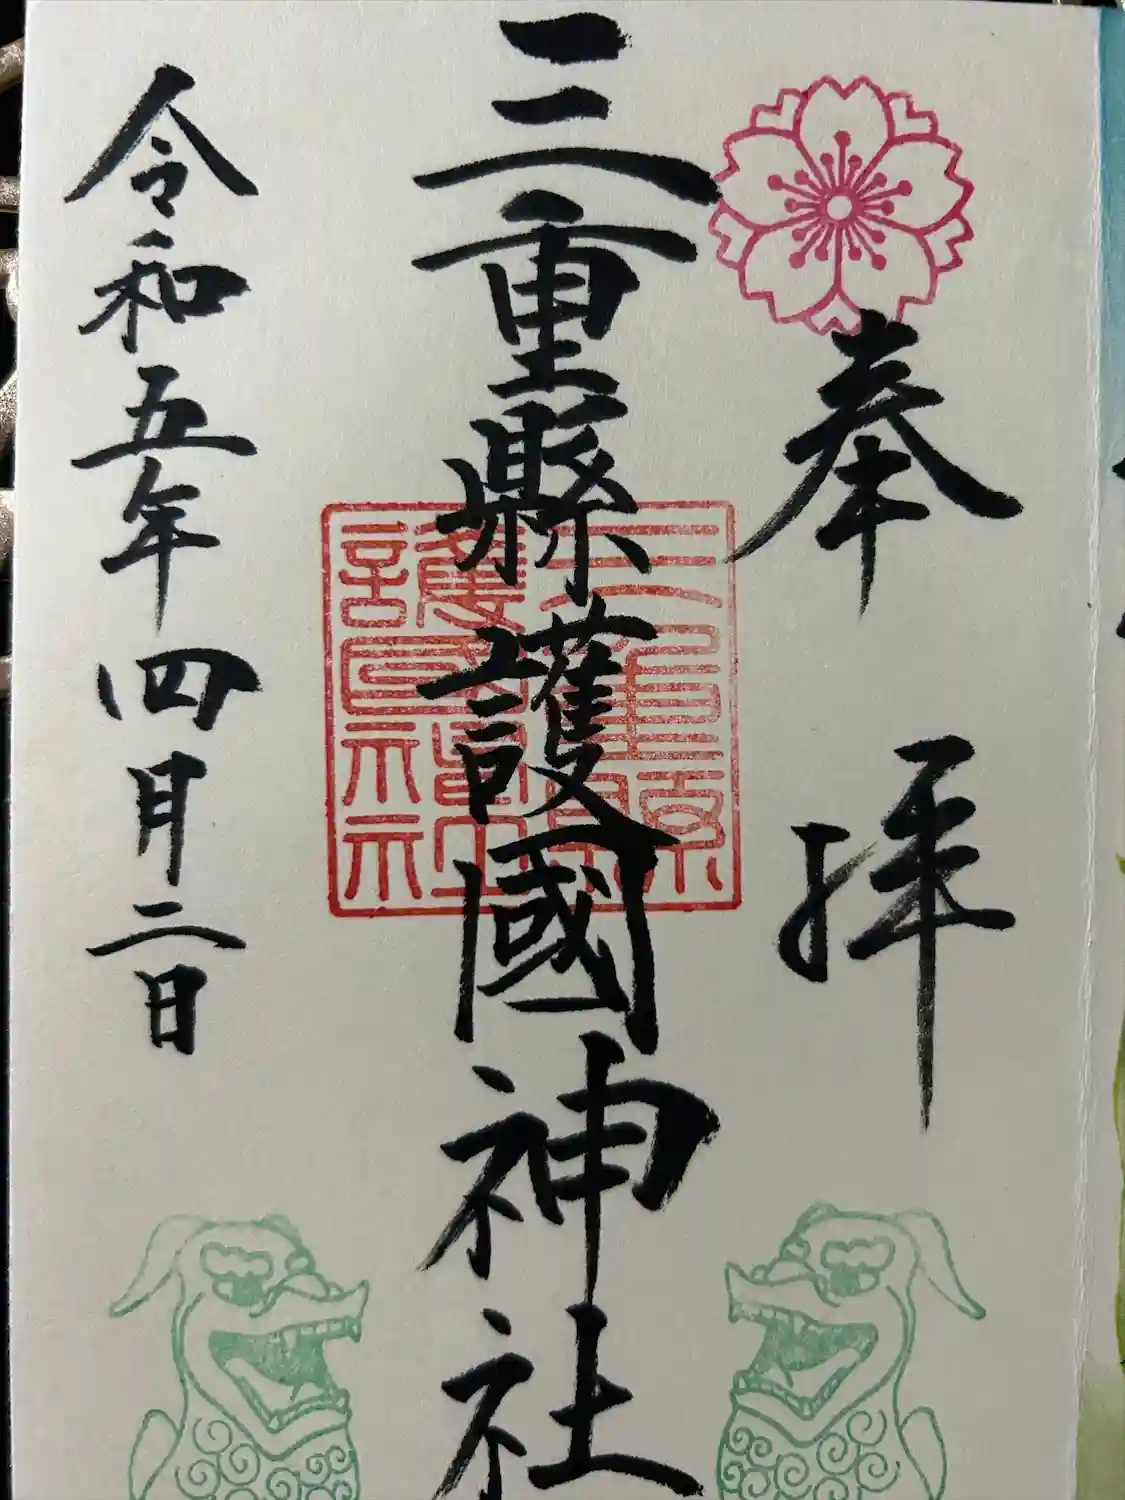 奉拝
三重縣護國神社
令和五年四月二日
三重縣護國神社